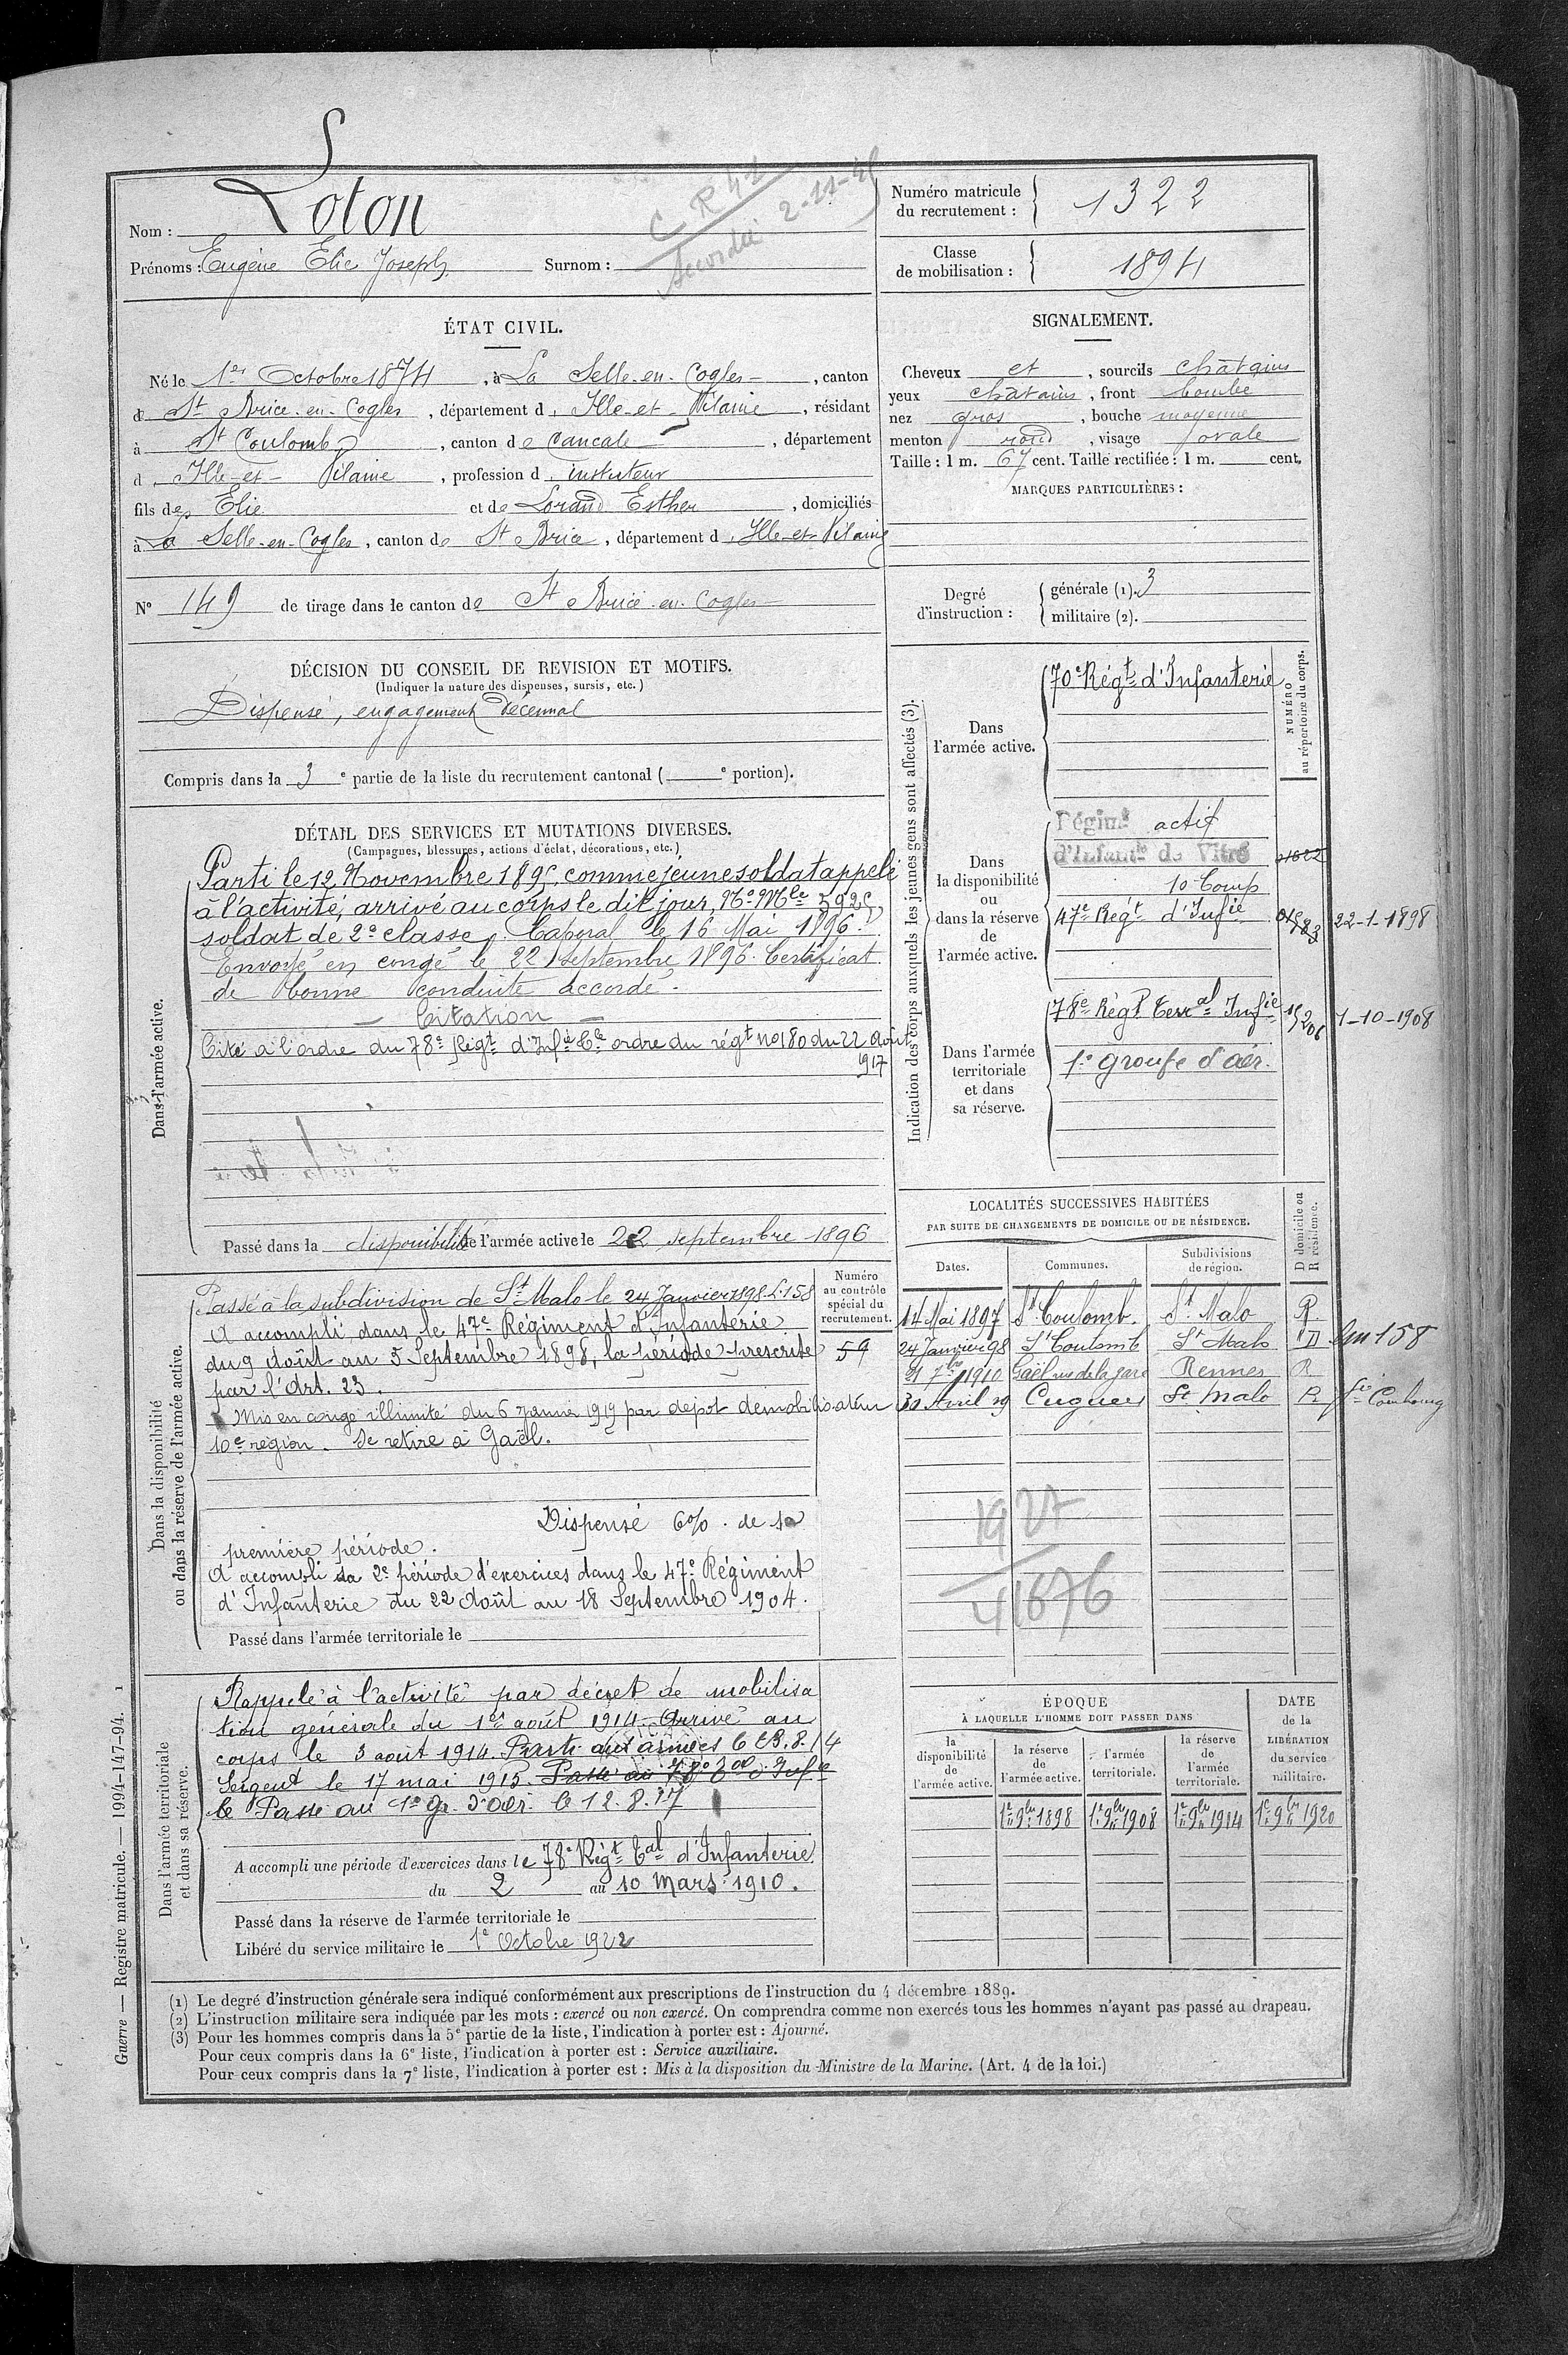 Nom : Loton
Prénoms : Eugène Elie Joseph Surnom :
C R 42
accordée 2-11-
Numéro matricule
du recrutement : 1322
Classe
de mobilisation : 1894
ÉTAT CIVIL.
Né le 1er Octobre 1874, à La Selle-en-Cogles, canton
de St Brice-en-Cogles, département d'Ille-et-Vilaine, résidant
à St Coulomb, canton de Cancale, département
d'Ille-et-Vilaine, profession d'instituteur
fils de Elie et de Lorand Esther, domiciliés
à La Selle-en-Cogles, canton de St Brice, département d'Ille-et-Vilaine
N° 149 de tirage dans le canton de St Brice-en-Cogles
SIGNALEMENT.
Cheveux et, sourcils châtains
yeux châtains, front bombé
nez gros, bouche moyenne
menton rond, visage ovale
Taille : 1 m. 67 cent. Taille rectifiée : 1 m. cent.
MARQUES PARTICULIÈRES :
Degré
d'instruction :
générale (1). 3
militaire (2).
DÉCISION DU CONSEIL DE REVISION ET MOTIFS.
(Indiquer la nature des dispenses, sursis, etc.)
Dispensé, engagement décennal
Compris dans la 3e partie de la liste du recrutement cantonal ( e portion).
DÉTAIL DES SERVICES ET MUTATIONS DIVERSES.
(Campagnes, blessures, actions d'éclat, décorations, etc.)
Dans l'armée active.
Parti le 12 Novembre 1895, comme jeune soldat appelé
à l'activité, arrivé au corps le dit jour, No Mle 5925
soldat de 2e classe. Caporal le 16 Mai 1896.
Envoyé en congé le 22 septembre 1896. Certificat
de bonne conduite accordé.
Citation
Cité à l'ordre du 78e Régt d'Infie Tle ordre du régt no 180 du 22 Août
1917
Passé dans la disponibilité de l'armée active le 22 septembre 1896
Indication des corps auxquels les jeunes gens sont affectés (3).
NUMÉRO
au répertoire du corps.
Dans
l'armée active.
70e Régt d'Infanterie
Dans
la disponibilité
ou
dans la réserve
de
l'armée active.
Régimt actif
d'Infantie de Vitré
10 Corps
47e Régt d'Infie
22-1-1898
Dans l'armée
territoriale
et dans
sa réserve.
78e Régt Terral Infie
1-10-1908
1er groupe d'aér.
LOCALITÉS SUCCESSIVES HABITÉES
PAR SUITE DE CHANGEMENTS DE DOMICILE OU DE RÉSIDENCE.
Dates. Communes. Subdivisions
de région. D domicile ou
R résidence.
14 Mai 1897 St Coulomb. St Malo R.
24 Janvier 98 St Coulomb St Malo D 158
21 7bre 1910 Gaël rue de la gare Rennes R
Avril 19 Cuguen St Malo R Combourg
1927
41876
Dans la disponibilité
ou dans la réserve de l'armée active.
Numéro
au contrôle
spécial du
recrutement.
59
Passé à la subdivision de St Malo le 24 Janvier 1898 L. 158
A accompli dans le 47e Régiment d'Infanterie
du 9 Août au 5 Septembre 1898, la période prescrite
par l'Art. 23.
Mis en congé illimité du 6 janvier 1919 par dépôt démobilisateur
10e région. Se retire à Gaël.
Dispensé 6% de sa
première période.
A accompli sa 2e période d'exercices dans le 47e Régiment
d'Infanterie du 22 Août au 18 Septembre 1904.
Passé dans l'armée territoriale le
Dans l'armée territoriale
et dans sa réserve.
Rappelé à l'activité par décret de mobilisa
tion générale du 1er août 1914. Arrivé au
corps le 3 août 1914. Parti aux armées le 23.8.14
Sergent le 17 mai 1915. Passé au 78e d'Infie
le Passé au 1er Gr. d'aér. le 12.8.17
A accompli une période d'exercices dans le 78e Régt Tal d'Infanterie
du 2 au 10 Mars 1910.
Passé dans la réserve de l'armée territoriale le
Libéré du service militaire le 1e Octobre 1922
ÉPOQUE
À LAQUELLE L'HOMME DOIT PASSER DANS
la
disponibilité
de
l'armée active.
la réserve
de
l'armée active.
l'armée
territoriale.
la réserve
de
l'armée
territoriale.
DATE
de la
LIBÉRATION
du service
militaire.
1er 9bre 1898 1er 9bre 1908 1er 9bre 1914 1er 9bre 1920
(1) Le degré d'instruction générale sera indiqué conformément aux prescriptions de l'instruction du 4 décembre 1889.
(2) L'instruction militaire sera indiquée par les mots : exercé ou non exercé. On comprendra comme non exercés tous les hommes n'ayant pas passé au drapeau.
(3) Pour les hommes compris dans la 5e partie de la liste, l'indication à porter est : Ajourné.
Pour ceux compris dans la 6e liste, l'indication à porter est : Service auxiliaire.
Pour ceux compris dans la 7e liste, l'indication à porter est : Mis à la disposition du Ministre de la Marine. (Art. 4 de la loi.)
Guerre — Registre matricule. — 1994-147-94. 1